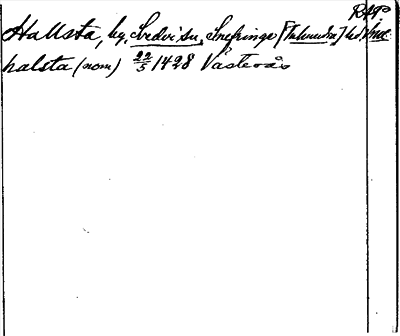 RAp
Hallsta, by, Svedvi sn, Snefringe [Tuhundra] hd
halsta (nom) 22/5 1428 Västerås